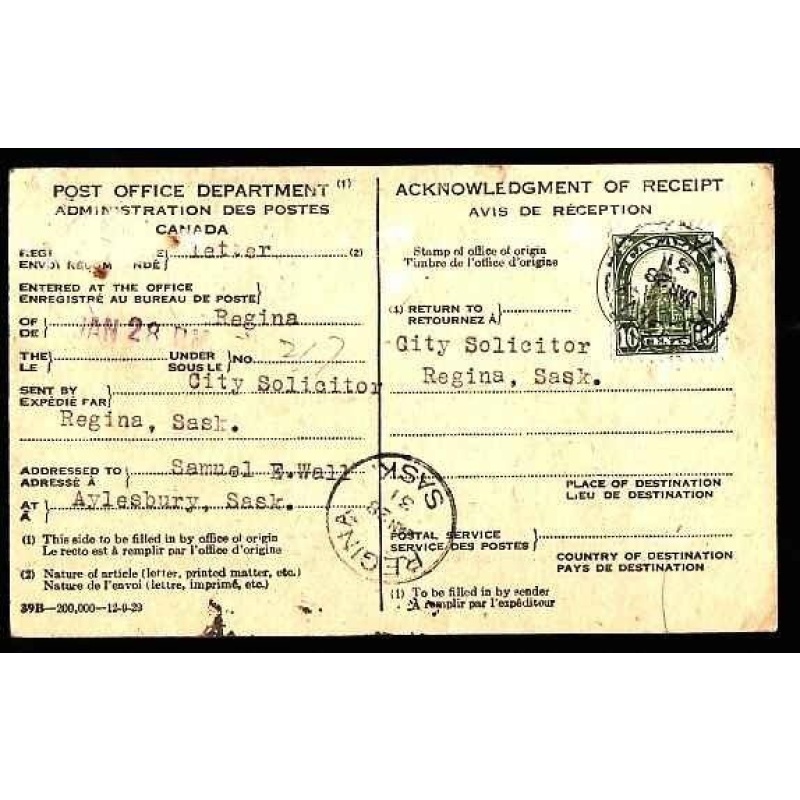 POST OFFICE DEPARTMENT (1)
ADMINISTRATION DES POSTES
CANADA
letter (2)
ENTERED AT THE OFFICE
ENREGISTRÉ AU BUREAU DE POSTE
OF Regina
DE JAN 28
THE UNDER No. 217
LE SOUS LE
SENT BY City Solicitor
EXPÉDIÉ FAR
Regina, Sask.
ADDRESSED TO Samuel E. Wall
ADRESSÉ À
AT Aylesbury, Sask.
À
(1) This side to be filled in by office of origin
Le recto est à remplir par l'office d'origine
(2) Nature of article (letter, printed matter, etc.)
Nature de l'envoi (lettre, imprimé, etc.)
39B—200,000—12-9-29
ACKNOWLEDGMENT OF RECEIPT
AVIS DE RÉCEPTION
Stamp of office of origin
Timbre de l'office d'origine
(1) RETURN TO
RETOURNEZ À
City Solicitor
Regina, Sask.
PLACE OF DESTINATION
LIEU DE DESTINATION
POSTAL SERVICE
SERVICE DES POSTES
COUNTRY OF DESTINATION
PAYS DE DESTINATION
(1) To be filled in by sender
A remplir par l'expéditeur
REGINA
JAN 28
31
SASK.
10